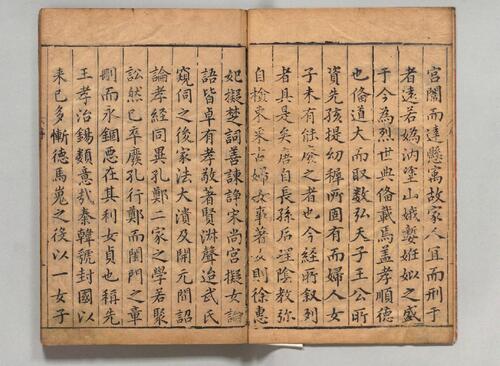 宮閫而達懸寓故家人冝而刑于
者逺若媯汭塗山娥㜪姙姒之盛
于今為烈世典偹載焉盖孝順德
也偹道大而取數弘天子王公所
資先孩提㓜稺所固有而婦人女
子未有能廢之者也今經所叙列
者具是矣唐自長孫后理陰教弥
自撿束采古婦女事著女則徐惠
妃擬楚詞善諫諍宋尚宫擬女論
語皆卓有孝敬著賢淋聲迨武氏
窺伺之後家法大潰及開元間詔
論孝經同異孔鄭二家之學若聚
訟然已卒廢孔行鄭而閨門之章
刪而永錮惡在其利女貞也稱先
王孝治錫類意哉秦韓虢封國以
来已多慚德馬嵬之後以一女子